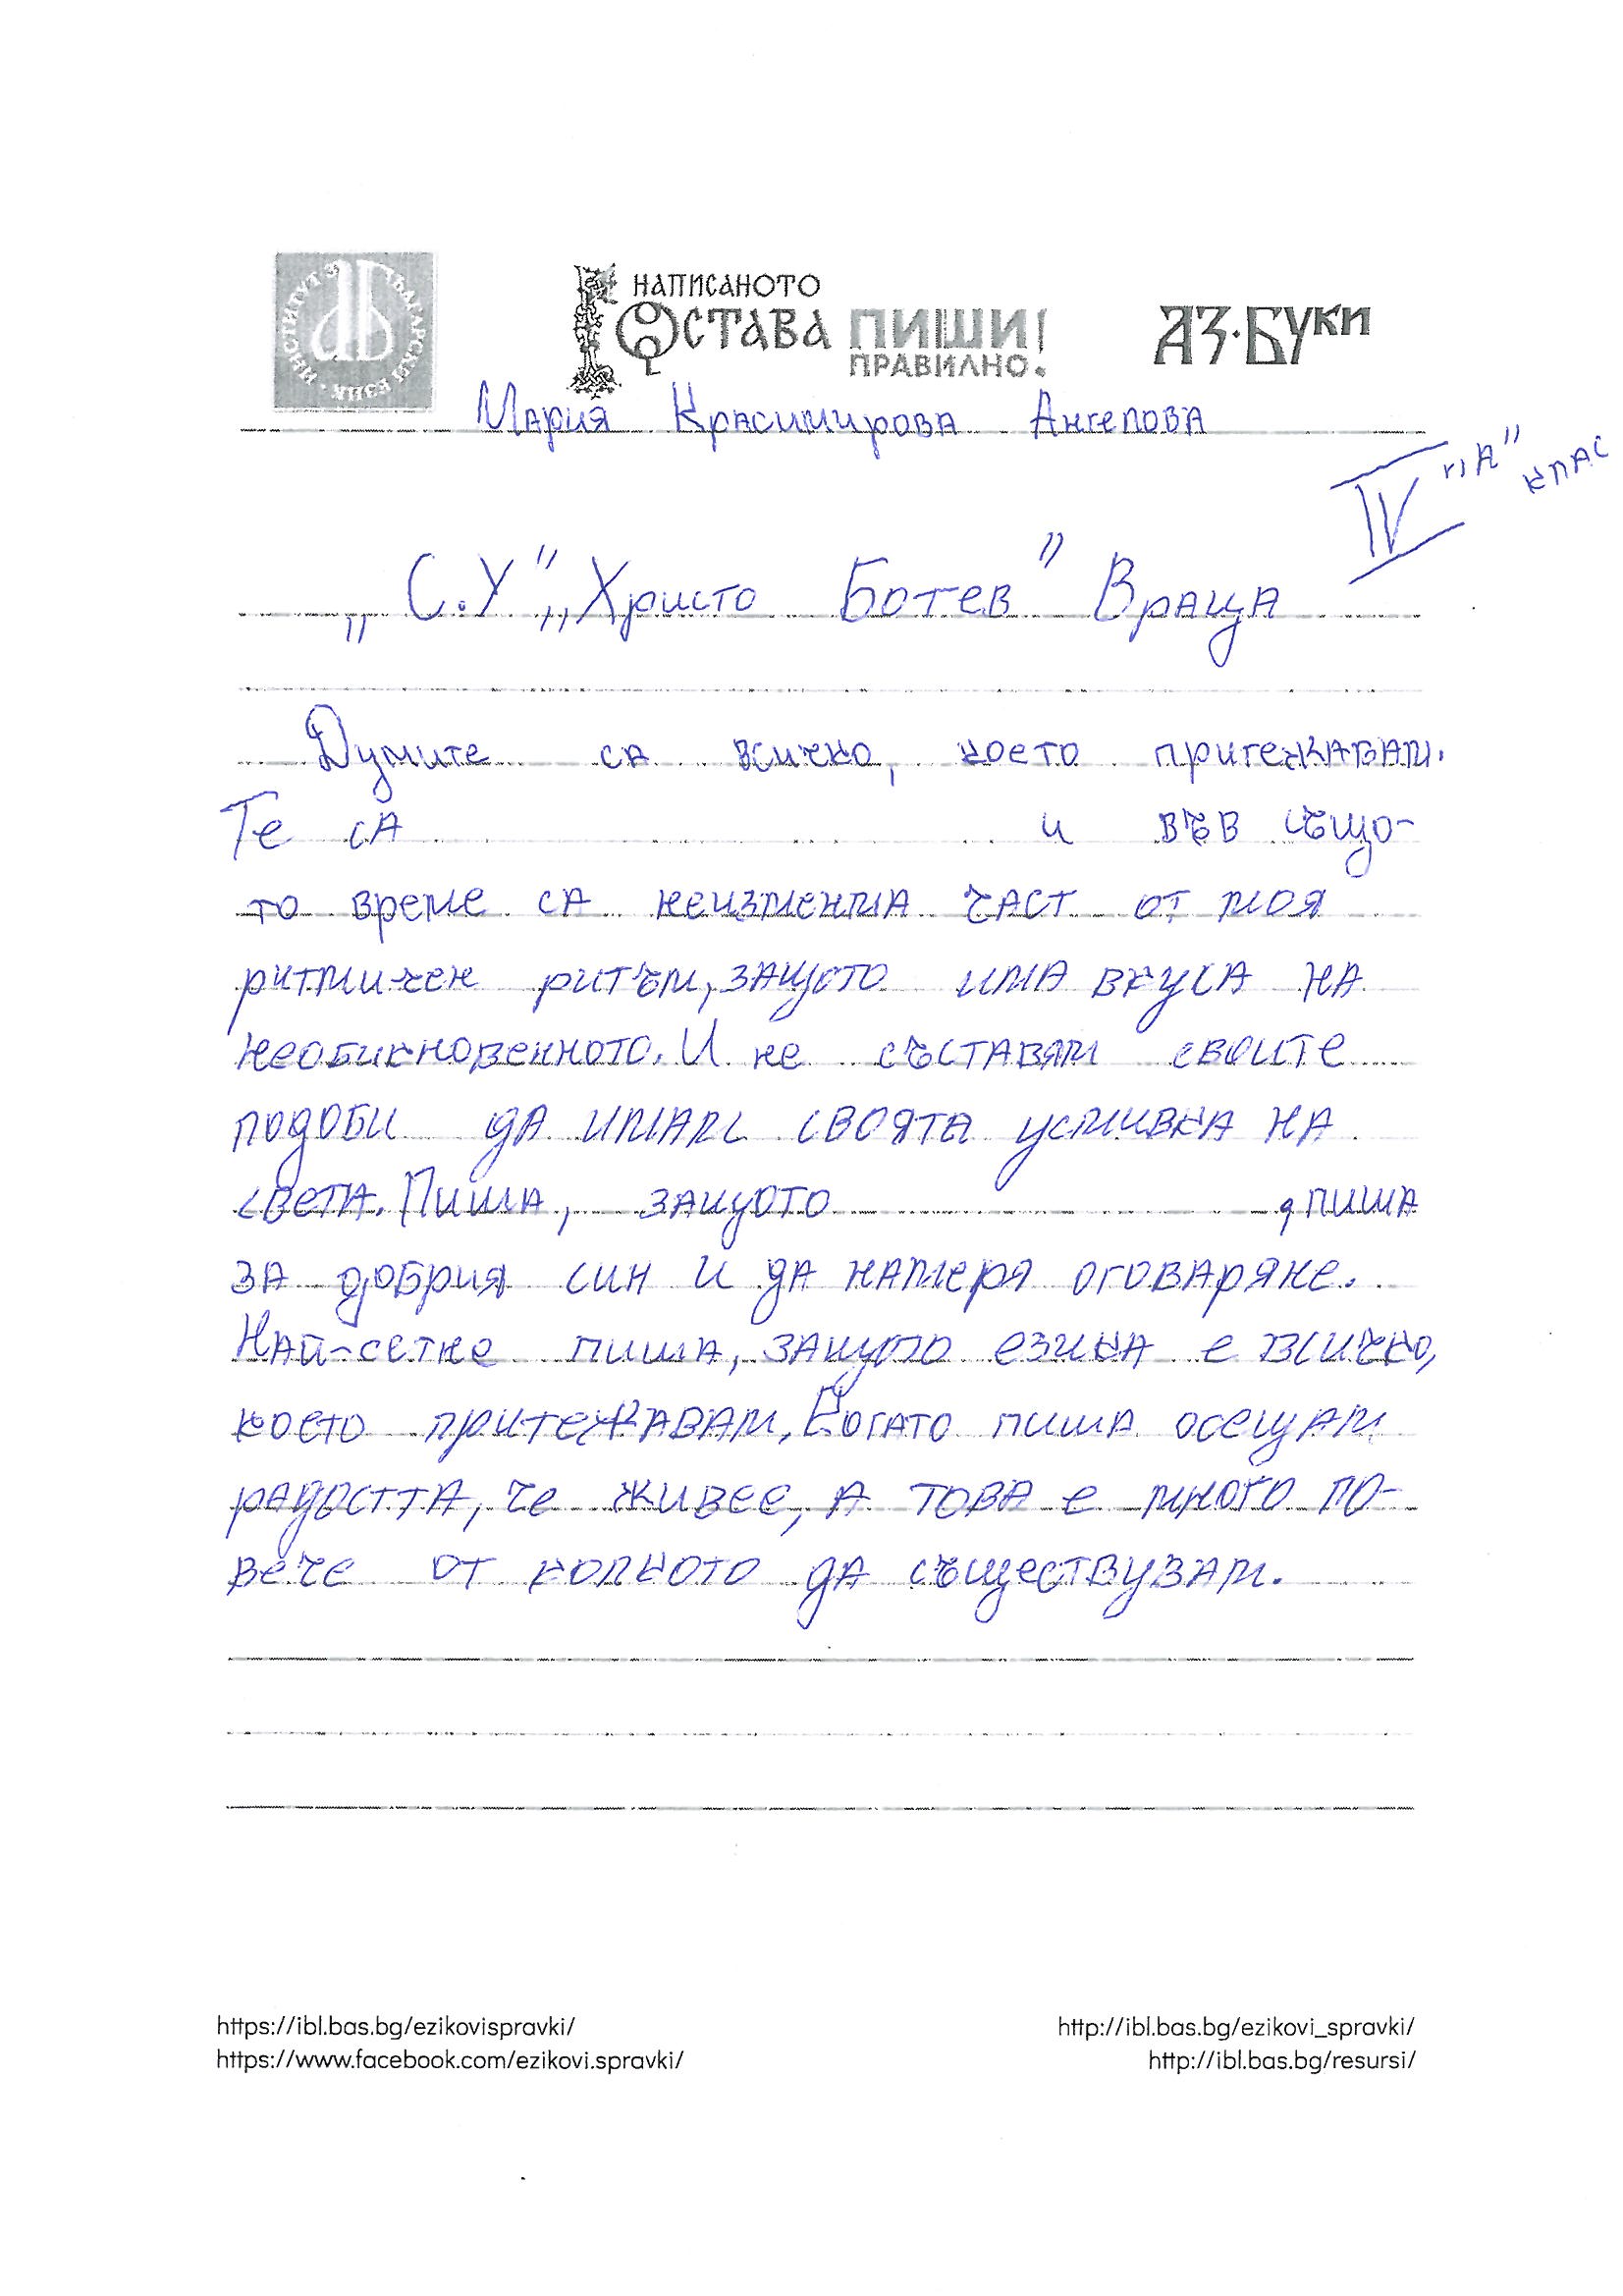 ИНСТИТУТ ЗА БЪЛГАРСКИ ЕЗИК · БАН
НАПИСАНОТО
ОСТАВА ПИШИ!
ПРАВИЛНО.
АЗ·БУКИ
Мария Красимирова Ангелова
IV "А" клас
„С.У" „Христо Ботев" Враца
Думите са всичко, което притежавам.
Те са и във също-
то време са неизменма част от моя
ритмичен ритъм, защото има вкуса на
необикновенното. И не съставям своите
подоби да имам своята усмивка на
света. Пиша, защото , пиша
за добрия син и да намеря оговаряне.
Най-сетне пиша, защото езика е всичко,
което притежавам, Когато пиша осещам
радостта, че живее, а това е много по-
вече от колкото да съществувам.
https://ibl.bas.bg/ezikovispravki/
https://www.facebook.com/ezikovi.spravki/
http://ibl.bas.bg/ezikovi_spravki/
http://ibl.bas.bg/resursi/